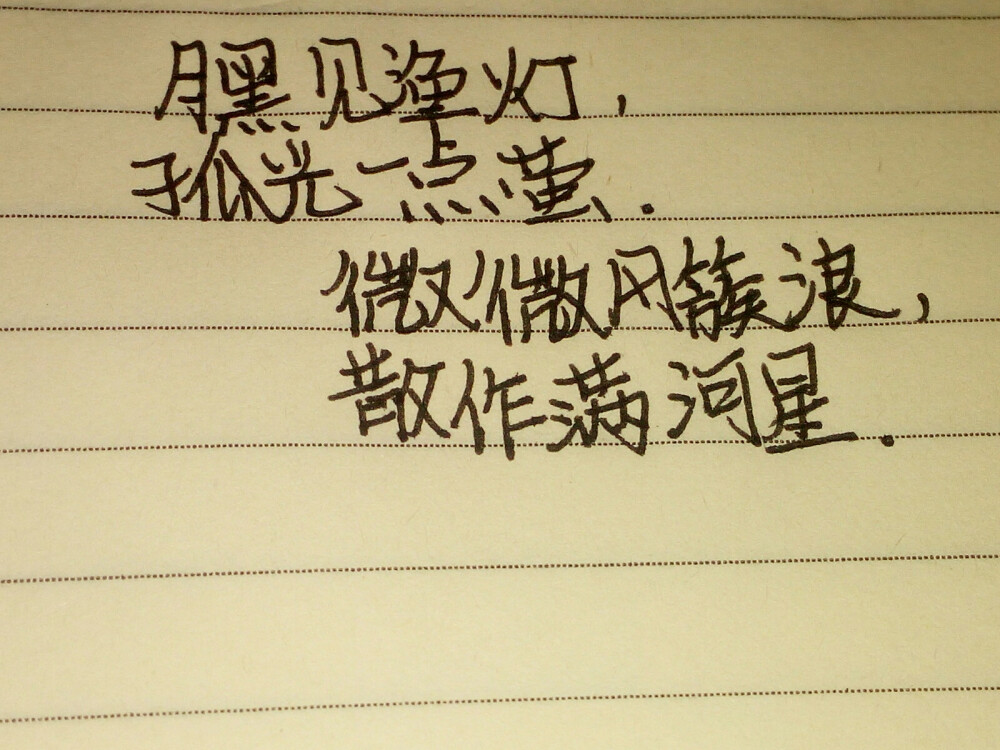 月黑见渔灯,
孤光一点萤.
微微风簇浪,
散作满河星.